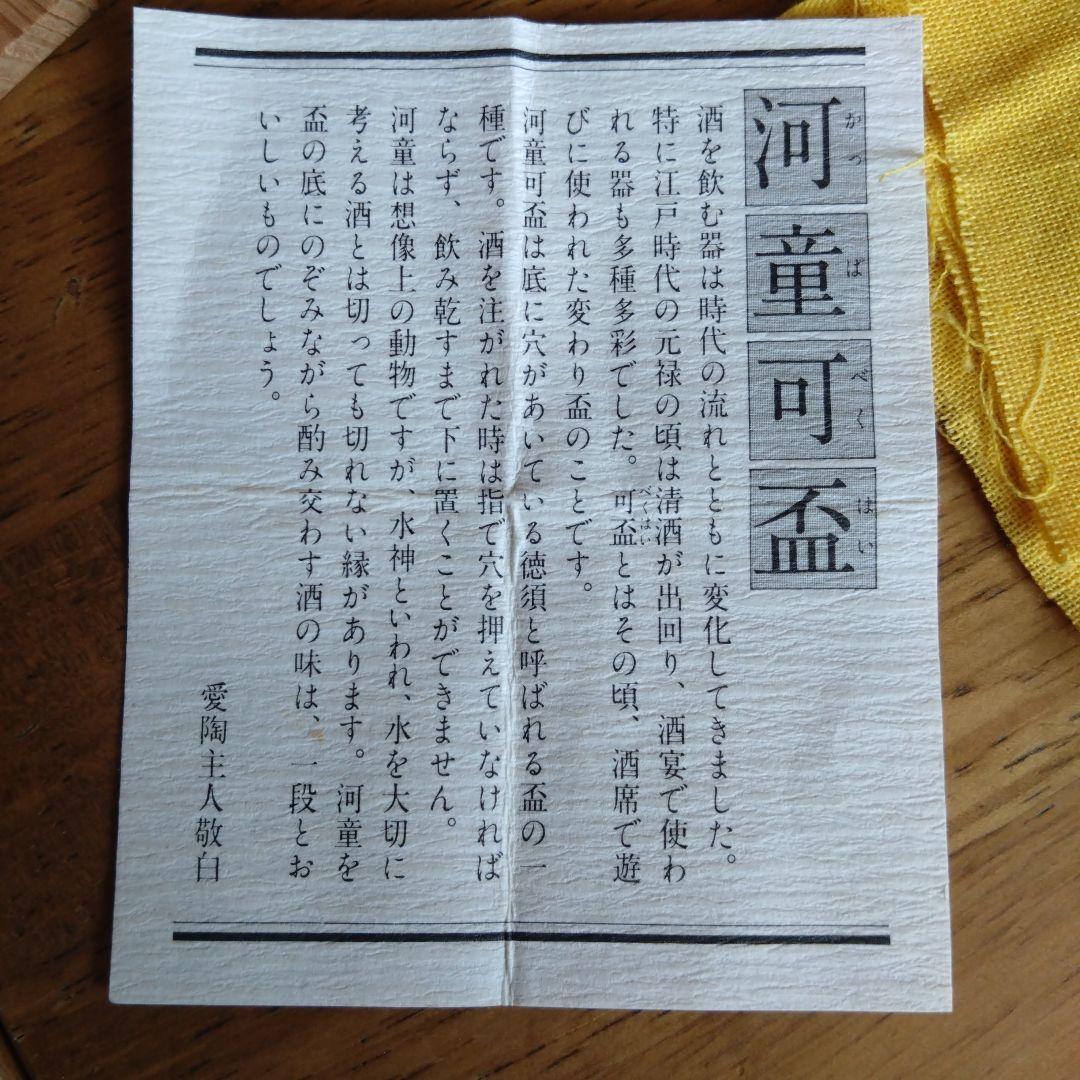 河童可盃
かっぱべくはい
酒を飲む器は時代の流れとともに変化してきました。
特に江戸時代の元禄の頃は清酒が出回り、酒宴で使わ
れる器も多種多彩でした。可盃とはその頃、酒席で遊
べくはい
びに使われた変わり盃のことです。
河童可盃は底に穴があいている徳須と呼ばれる盃の一
種です。酒を注がれた時は指で穴を押えていなければ
ならず、飲み乾すまで下に置くことができません。
河童は想像上の動物ですが、水神といわれ、水を大切に
考える酒とは切っても切れない縁があります。河童を
盃の底にのぞみながら酌み交わす酒の味は、一段とお
いしいものでしょう。
愛陶主人敬白